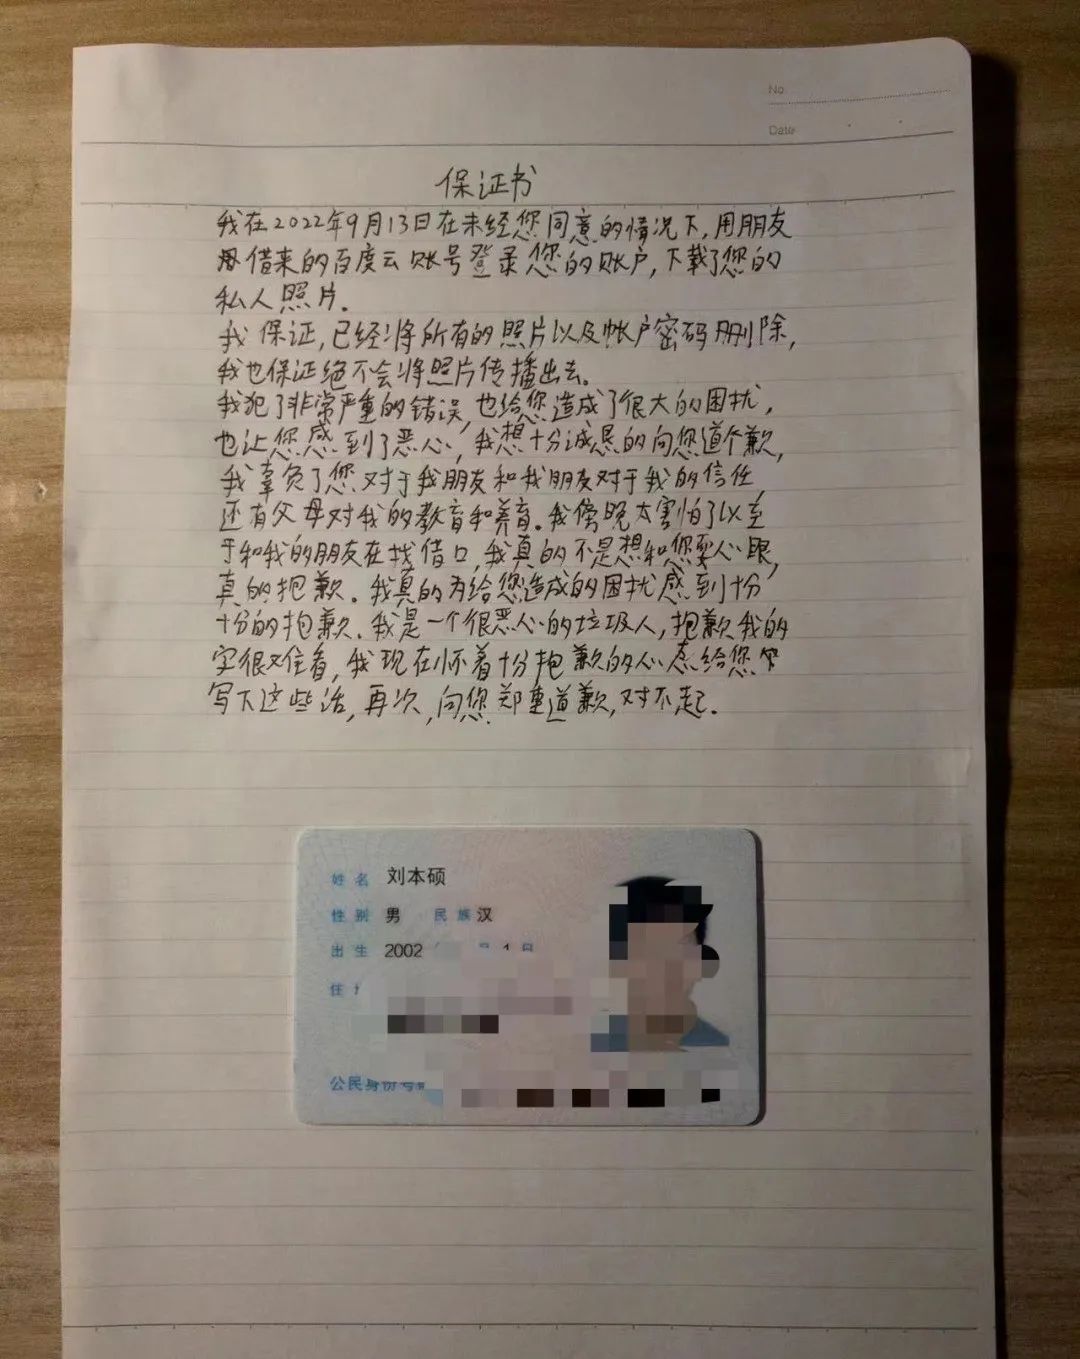 No.
Date
保证书
我在2022年9月13日在未经您同意的情况下,用朋友
借来的百度云账号登录您的账户,下载了您的
私人照片.
我保证,已经将所有的照片以及帐户密码删除,
我也保证绝不会将照片传播出去。
我犯了非常严重的错误,也给您造成了很大的困扰,
也让您感到了恶心,我想十分诚恳的向您道个歉,
我辜负了您对于我朋友和我朋友对于我的信任
还有父母对我的教育和养育。我傍晚太害怕了以至
于和我的朋友在找借口,我真的不是想和您耍心眼,
真的抱歉。我真的为给您造成的困扰感到十分
十分的抱歉.我是一个很恶心的垃圾人,抱歉我的
字很难看,我现在怀着十分抱歉的心态给您
写下这些话,再次,向您郑重道歉,对不起.
姓名 刘本硕
性别 男 民族 汉
出生 2002 1 日
住
公民身份号